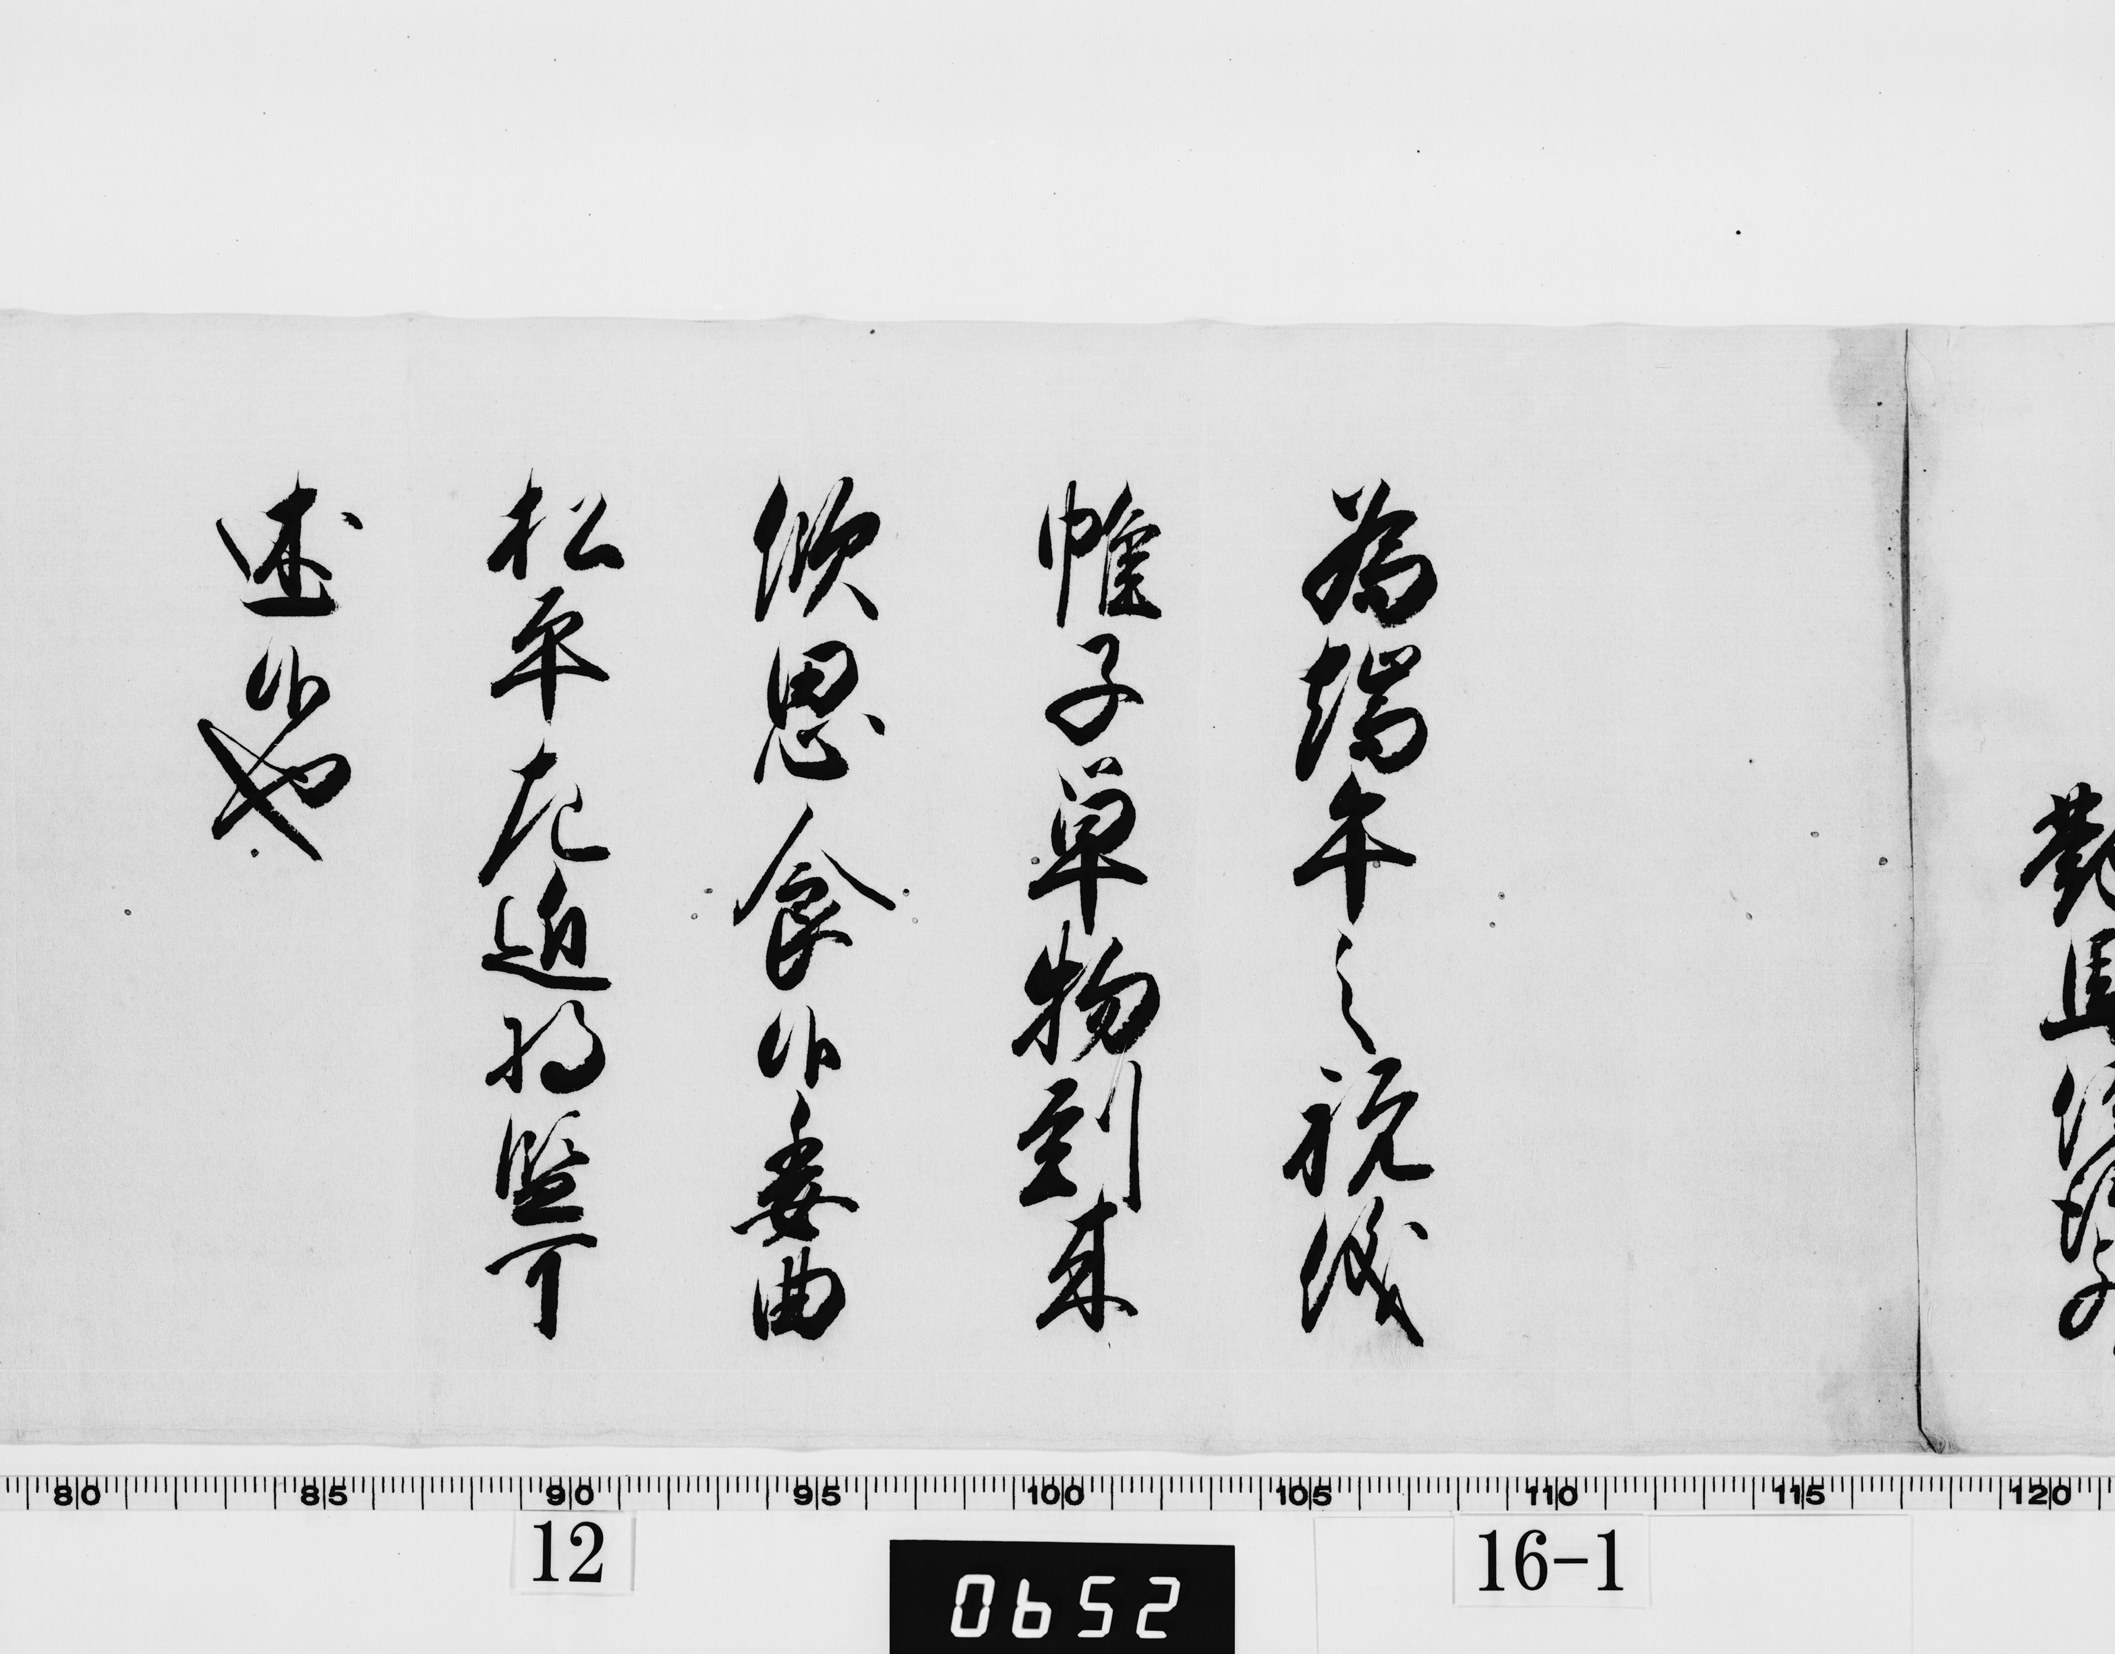 為端午之祝儀
帷子単物到来
欣思食候委曲
松平右近将監可
述候也
80 85 90 95 100 105 110 115 120
12
0652
16-1